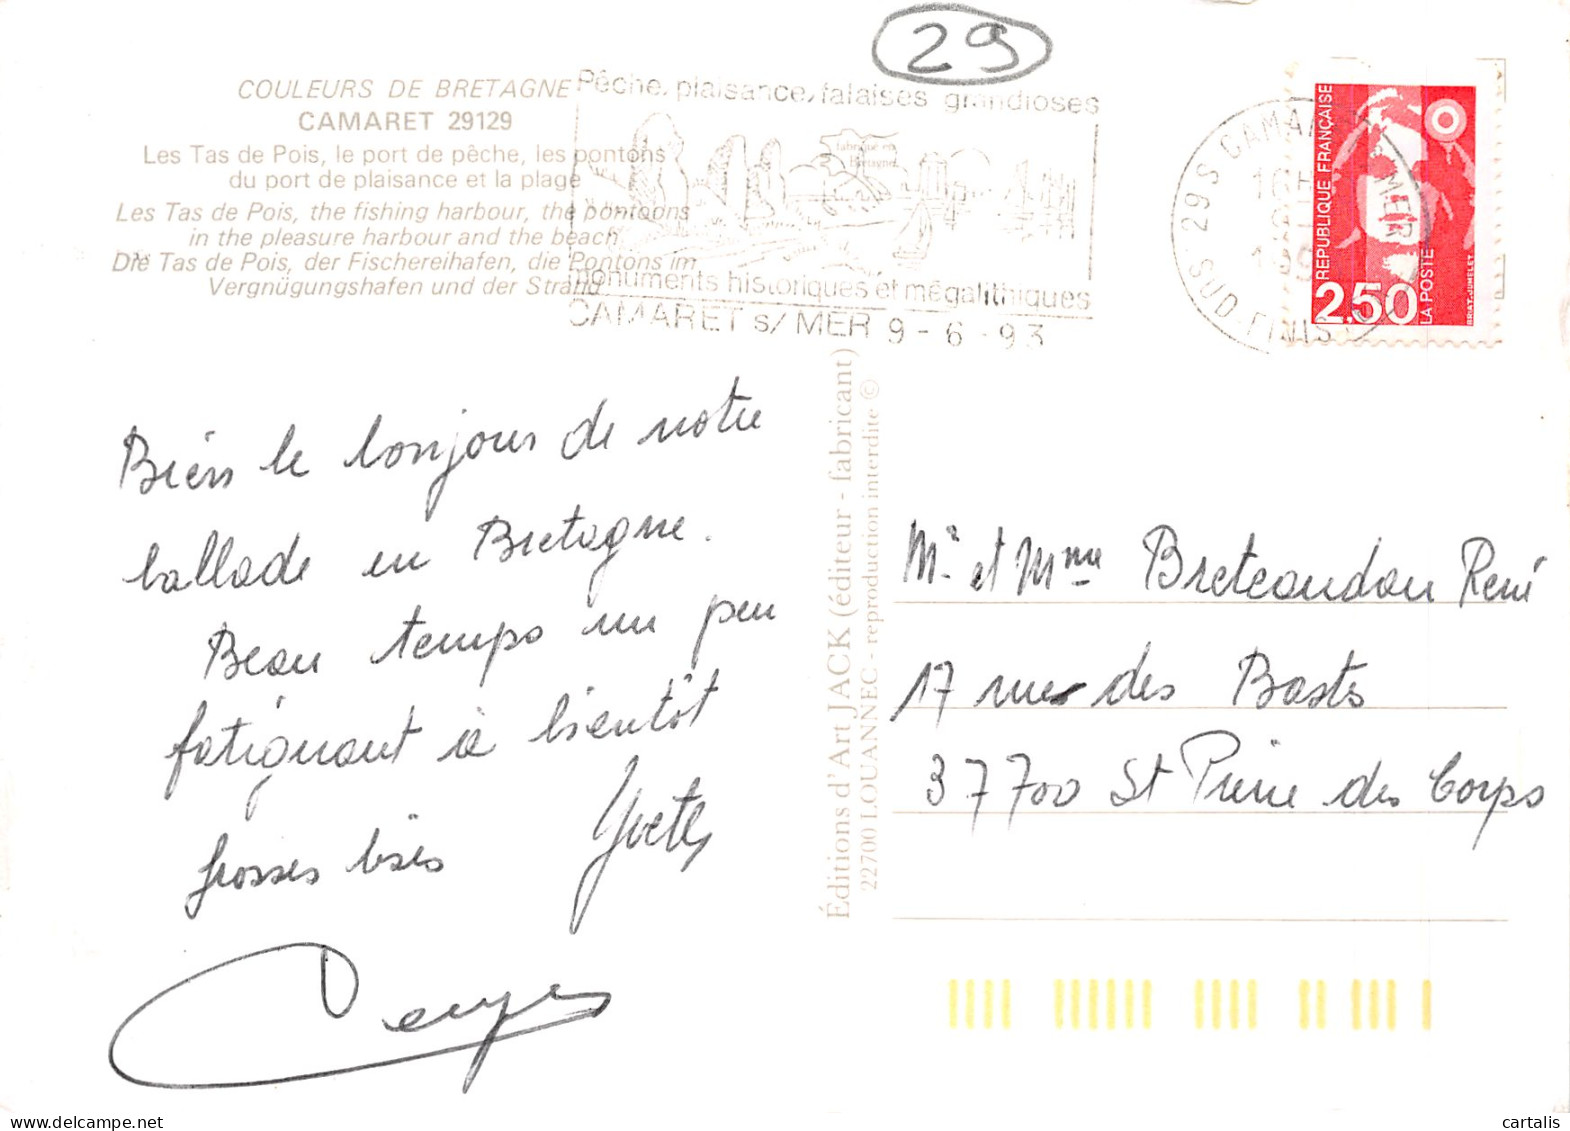 29
COULEURS DE BRETAGNE
CAMARET 29129
Les Tas de Pois, le port de pêche, les pontons
du port de plaisance et la plage
Les Tas de Pois, the fishing harbour, the pontoons
in the pleasure harbour and the beach
Die Tas de Pois, der Fischereihafen, die Pontons im
Vergnügungshafen und der Strand
Pêche, plaisance, falaises grandioses
fabriqué en
Bretagne
monuments historiques et mégalithiques
CAMARET s/ MER 9-6-93
29S CAMARET MER
SUD-FINIS
REPUBLIQUE FRANÇAISE
2,50
LA POSTE
BRIAT-JUMELET
Bien le bonjour de notre
ballade en Bretagne.
Beau temps un peu
fatiguant à bientôt
grosses bises Yvette
Éditions d'Art JACK (éditeur - fabricant)
22700 LOUANNEC - reproduction interdite ©
Mr et Mme Breteaudau René
17 rue des Bastes
37700 St Pierre des Corps
cartalis
delcampe.net